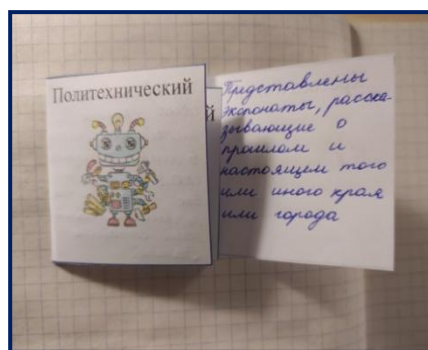 Политехнический
й
Представлены
экспонаты, расска-
зывающие о
прошлом и
настоящем того
или иного края
или города